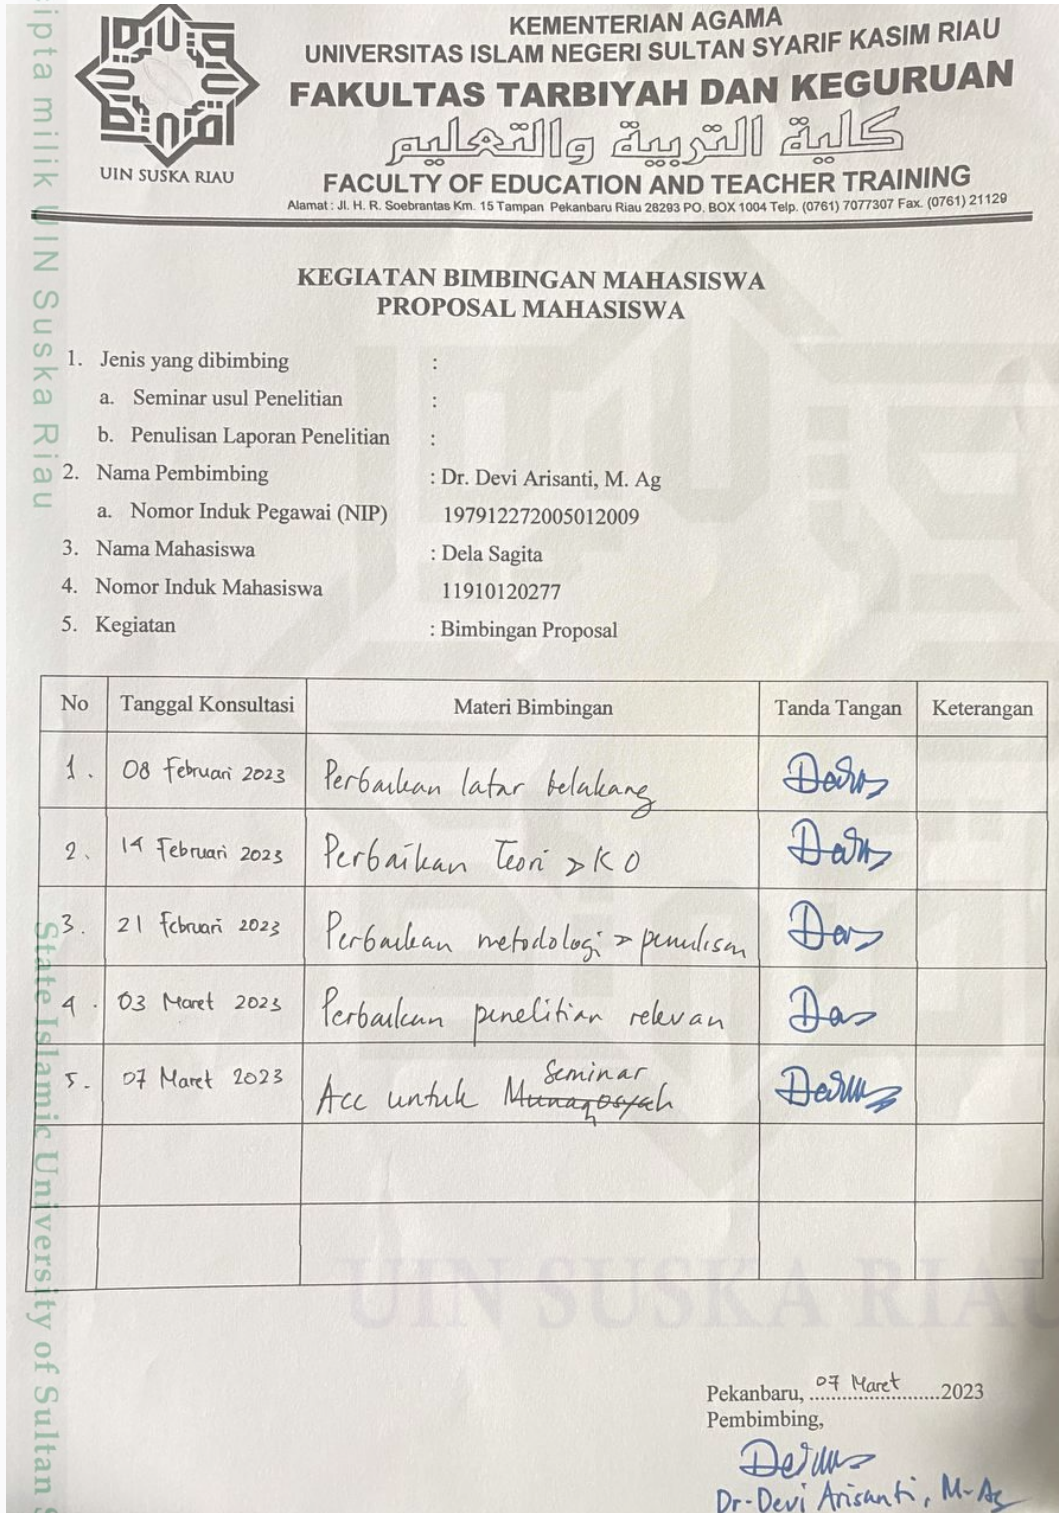 KEMENTERIAN AGAMA
UNIVERSITAS ISLAM NEGERI SULTAN SYARIF KASIM RIAU
FAKULTAS TARBIYAH DAN KEGURUAN
كلية التربية والتعليم
FACULTY OF EDUCATION AND TEACHER TRAINING
Alamat : Jl. H. R. Soebrantas Km. 15 Tampan Pekanbaru Riau 28293 PO. BOX 1004 Telp. (0761) 7077307 Fax. (0761) 21129
UIN SUSKA RIAU
KEGIATAN BIMBINGAN MAHASISWA
PROPOSAL MAHASISWA
1. Jenis yang dibimbing :
a. Seminar usul Penelitian :
b. Penulisan Laporan Penelitian :
2. Nama Pembimbing : Dr. Devi Arisanti, M. Ag
a. Nomor Induk Pegawai (NIP) 197912272005012009
3. Nama Mahasiswa : Dela Sagita
4. Nomor Induk Mahasiswa 11910120277
5. Kegiatan : Bimbingan Proposal
No Tanggal Konsultasi Materi Bimbingan Tanda Tangan Keterangan
1. 08 Februari 2023 Perbaikan latar belakang
2. 14 Februari 2023 Perbaikan Teori > KO
3. 21 Februari 2023 Perbaikan metodologi > penulisan
4. 03 Maret 2023 Perbaikan penelitian relevan
5. 07 Maret 2023 Acc untuk Munaqosyah Seminar
UIN SUSKA RIAU
Pekanbaru, 07 Maret 2023
Pembimbing,
Dr. Devi Arisanti, M-Ag
ipta milik UIN Suska Riau
State Islamic University of Sultan S